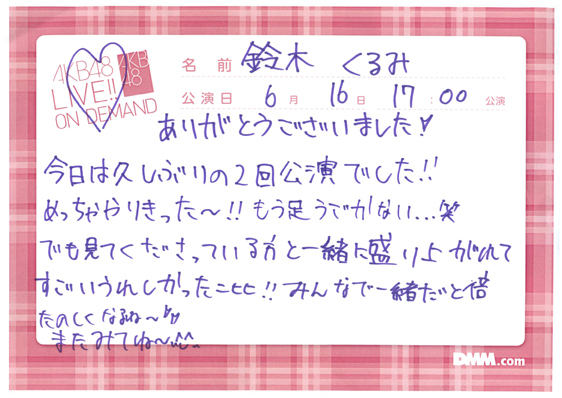 AKB48
LIVE!!
ON DEMAND
AKB
48
名前 鈴木 くるみ
公演日 6月 16日 17:00 公演
ありがとうございました
今日は久しぶりの2回公演でした!!
めっちゃやりきった〜!!もう足うごかない...笑
でも見てくださっている方と一緒に盛り上がれて
すごいうれしかったニヒヒ!!みんなで一緒だと倍
たのしくなるね〜
またみてね〜
DMM.com